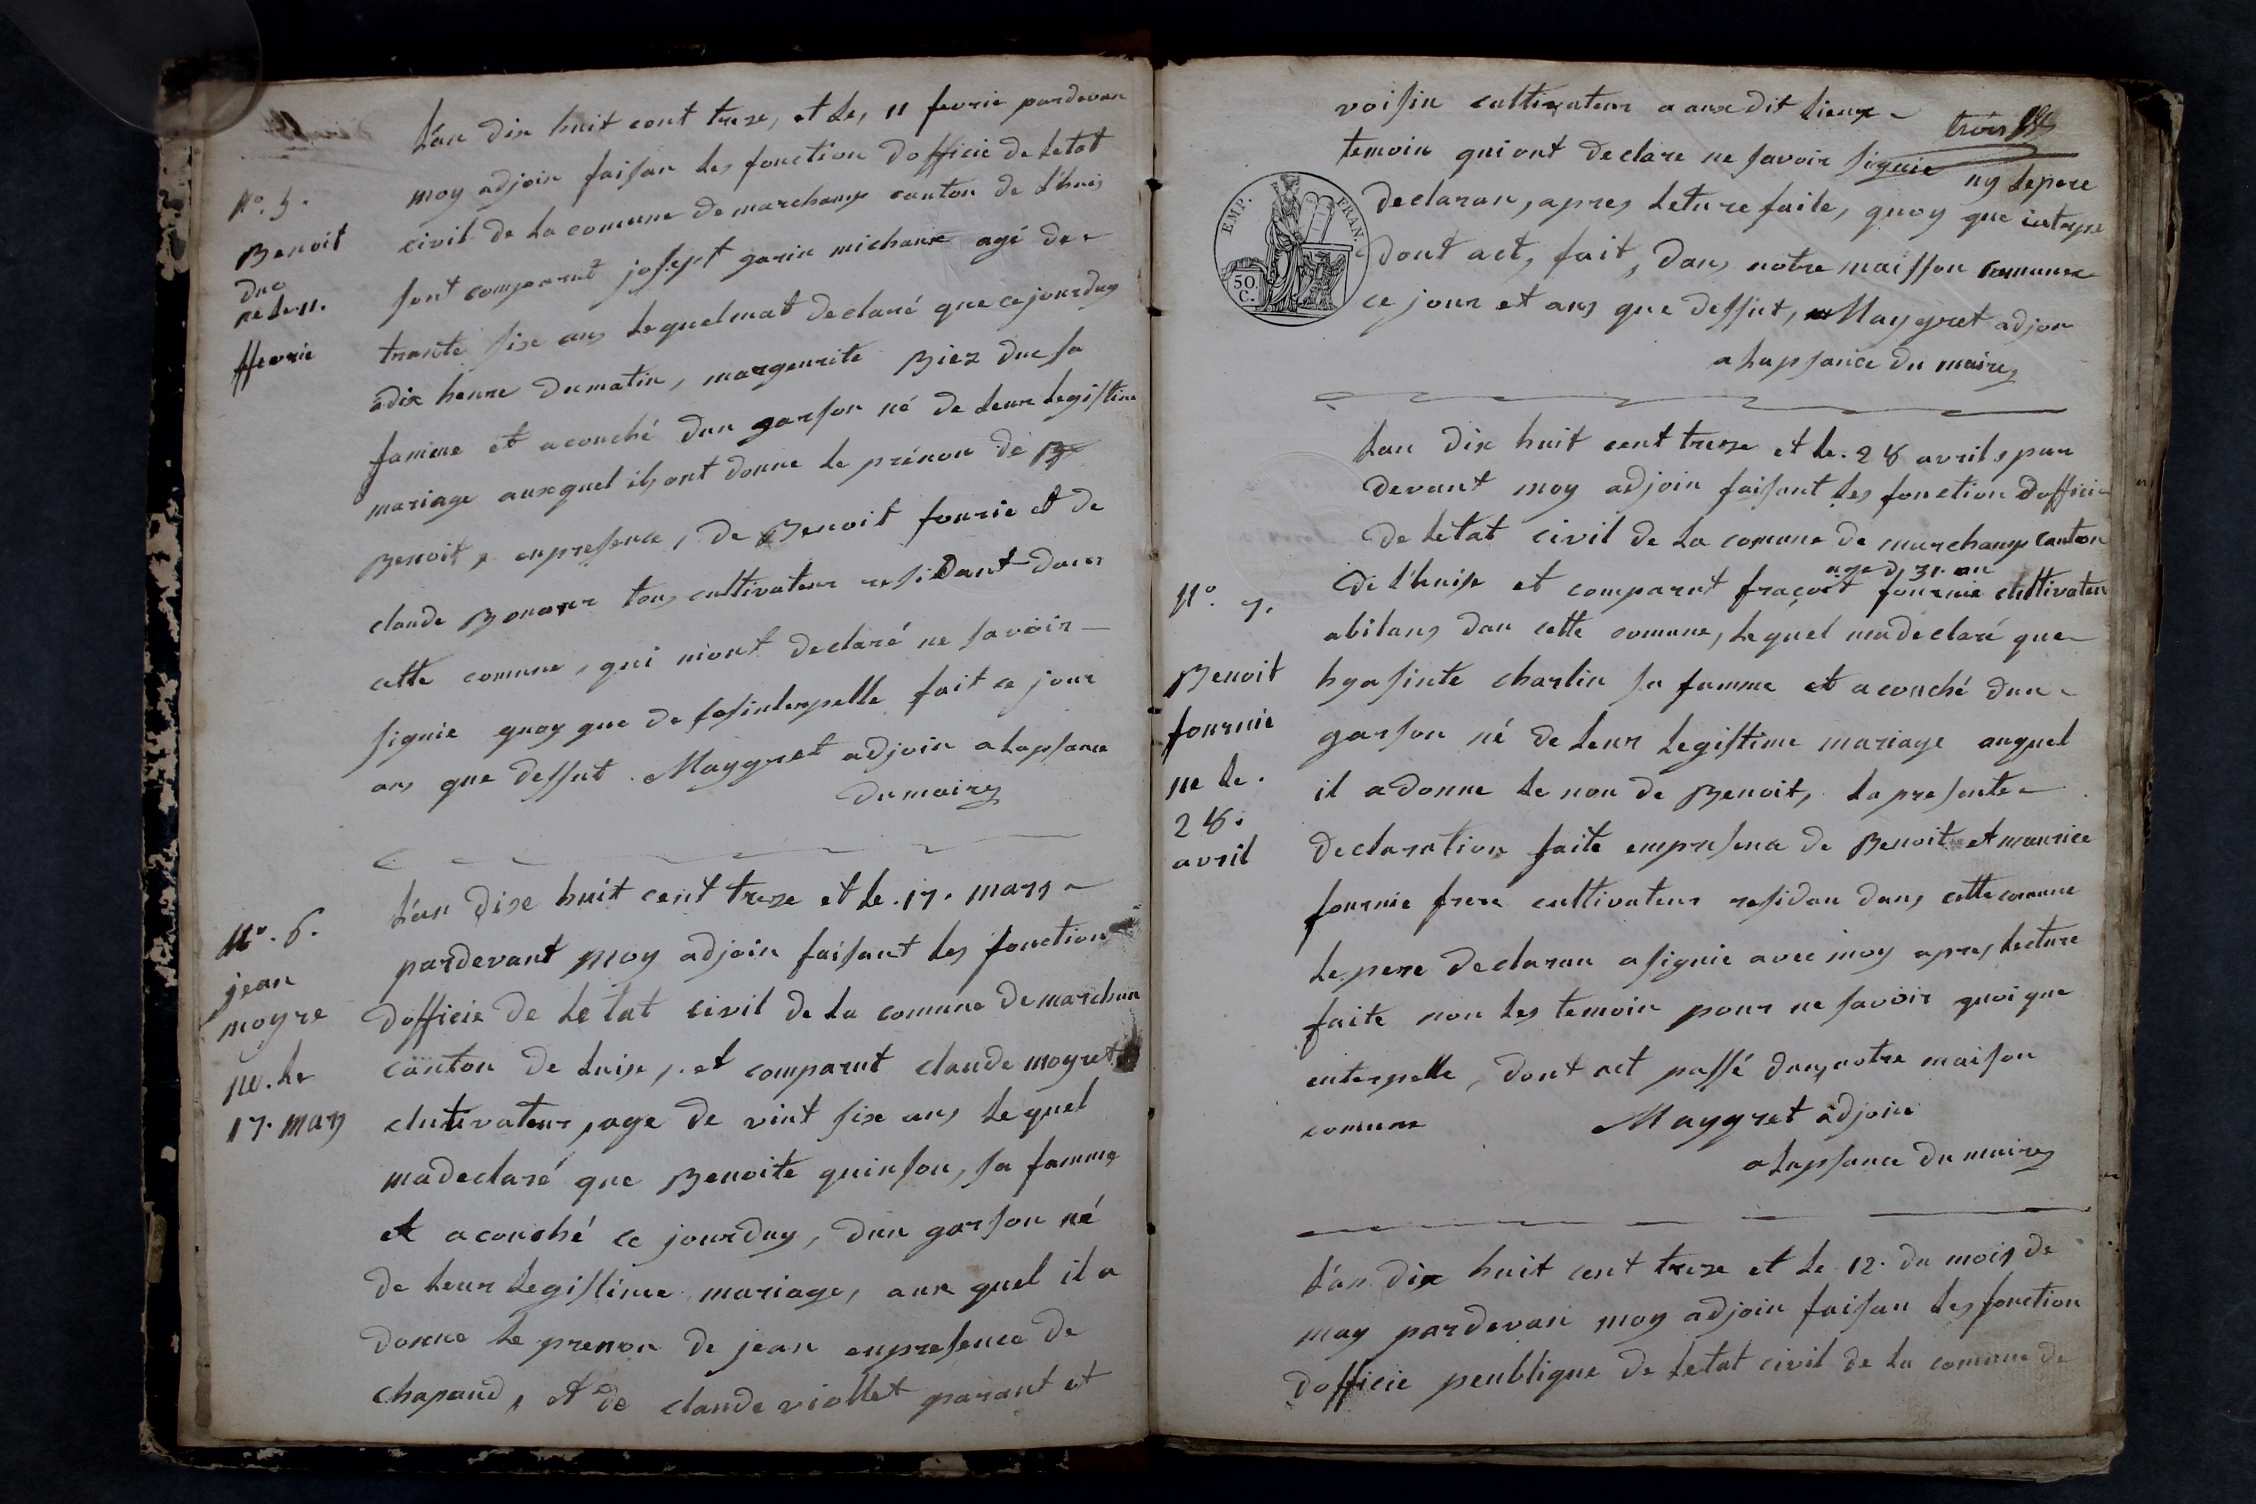 L'an dix huit cent treze, et le, 11 fevrie pardevan
moy adjoin faisan les fonction dofficie de letat
civil de la comune de marchamp canton de Lhuis
sont comparut josept garin michaux agé de
trante six ans lequel mat declaré que ce jourduy
a dix heure du matin, margeurite Biez duc sa
famme et a couché dun garson né de leur legistime
mariage aux quel ils ont donne le prénon de
Benoit, enpresence, de Benoit fourie et de
claude Bonard tous cultivateur residant dans
cette comune, qui mont declaré ne savoir
signie quoy que de interpelle fait ce jour
ans que dessut. Maygret adjoin a lapsance
du maire
N°. 5.
Benoit
duc
ne le 11.
ffevrie
L'an dixe huit cent treze et le. 17. mars
pardevant moy adjoin faisant les fonction
dofficie de letat civil de la comune de marchan
canton de luise, et comparut claude moyret
clutivateur, age de vint sixe ans le quel
madeclaré que Benoite guinson, sa famme
et a couché ce jourduy, dun garson né
de leur legistime mariage, aux quel il a
donne le prenon de jean enpresence de
chapand, et de claude viollet parant et
N°. 6.
jean
moyre
ne. le
17. mars
trois
voisin cultivateur a aux dit lieux
temoin qui ont declare ne savoir signie ny le pere
declaran, apres leture faite, quoy que
dont act, fait, dans notre maisson comune
ce jour et ans que dessut, Maygret adjon
a lapsance du maire
EMP. FRAN.
50. C.
Lan dix huit cent treze et le. 28 avril, par
devant moy adjoin faisant les fonction dofficie
de letat civil de la comune de marchamp canton
age d 31. an
de l'huise et comparut fraçoit fournie clultivateur
abitans dan cette comune, le quel madeclaré que
hyasinte charlin sa famme et a couché dun
garson né de leur legistime mariage auquel
il a donne le non de Benoit, la presente
declaration faite empresence de Benoit et maurice
fournie frere cultivateur residan dans cette comune
le pere declaran a signie avec moy apres lecture
faite non les temoin pour ne savoir quoi que
enterpelle, dont act passé dans notre maison
comune Maygret adjoin
a lapsance du maire
N°. 7.
Benoit
fournie
ne le.
28.
avril
L'an dix huit cent treze et le 12. du mois de
may pardevan moy adjoin faisan les fonction
dofficie peublique de letat civil de la comune de